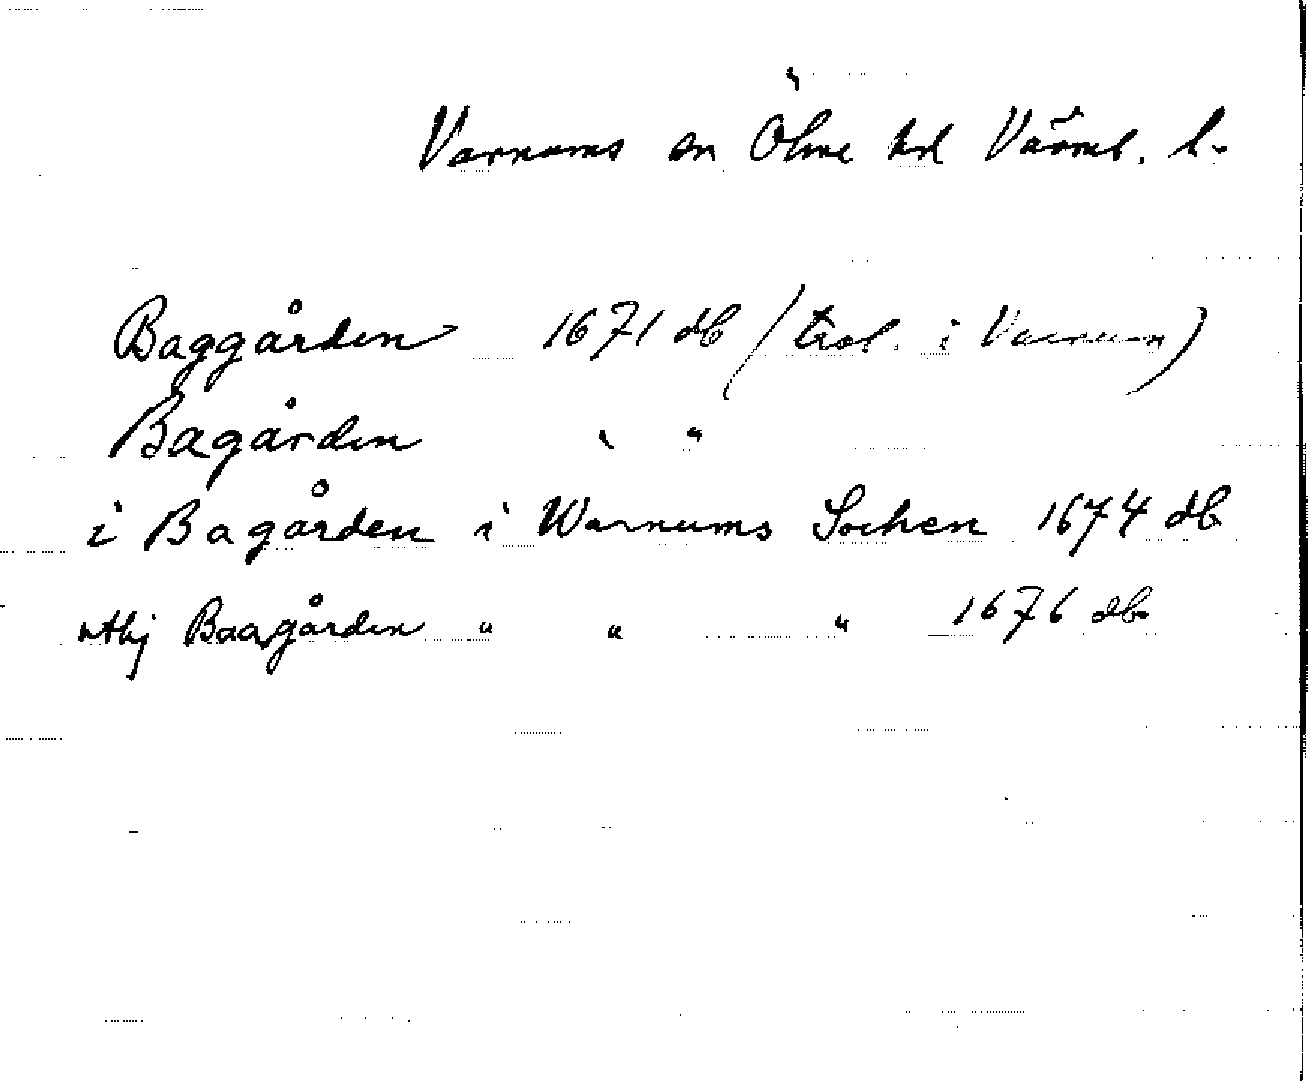 Varnums sn Ölme hd Värml. l.
Baggården 1671 db (trol. i Varnum)
Bagården " "
i Bagården i Warnums Sochen 1674 db
wthj Baagården " " " 1676 db